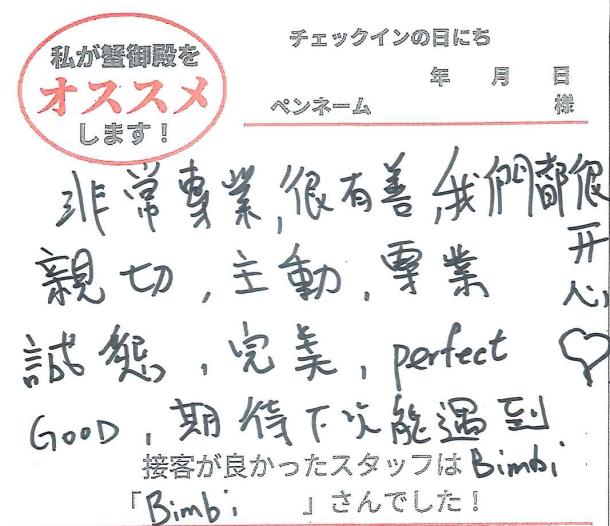 私が蟹御殿を
オススメ
します！
チェックインの日にち
年 月 日
ペンネーム 様
非常專業,很有善,我們都很
开心 ♡
親切,主動,專業
誠懇,完美,perfect
GOOD,期待下次能遇到
Bimbi
接客が良かったスタッフは
「Bimbi 」さんでした！